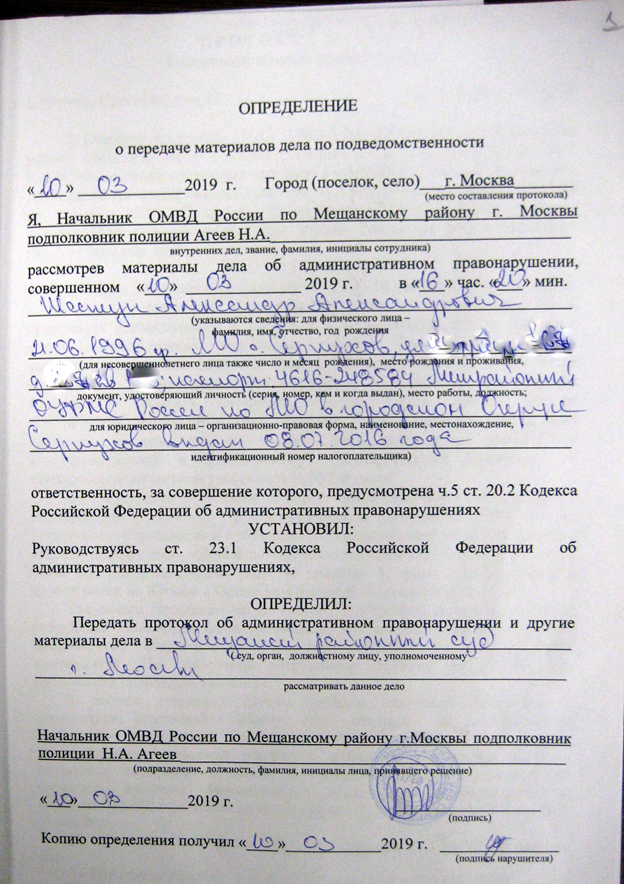 ОПРЕДЕЛЕНИЕ
о передаче материалов дела по подведомственности
«10» 03 2019 г. Город (поселок, село) г. Москва
(место составления протокола)
Я, Начальник ОМВД России по Мещанскому району г. Москвы
подполковник полиции Агеев Н.А.
внутренних дел, звание, фамилия, инициалы сотрудника)
рассмотрев материалы дела об административном правонарушении,
совершенном «10» 03 2019 г. в «16» час. «20» мин.
Шестун Александр Александрович
(указываются сведения: для физического лица –
фамилия, имя, отчество, год рождения
21.06.1996 гр. МО г. Серпухов
(для несовершеннолетнего лица также число и месяц рождения), место рождения и проживания,
паспорт 4616-248584 Межрайонный
документ, удостоверяющий личность (серия, номер, кем и когда выдан), место работы, должность;
ОУФМС России по МО в городском Округе
для юридического лица – организационно-правовая форма, наименование, местонахождение,
Серпухов выдан 08.07.2016 года
идентификационный номер налогоплательщика)
ответственность, за совершение которого, предусмотрена ч.5 ст. 20.2 Кодекса
Российской Федерации об административных правонарушениях
УСТАНОВИЛ:
Руководствуясь ст. 23.1 Кодекса Российской Федерации об
административных правонарушениях,
ОПРЕДЕЛИЛ:
Передать протокол об административном правонарушении и другие
материалы дела в Мещанский районный суд
(суд, орган, должностному лицу, уполномоченному
г. Москвы
рассматривать данное дело
Начальник ОМВД России по Мещанскому району г.Москвы подполковник
полиции Н.А. Агеев
(подразделение, должность, фамилия, инициалы лица, принявшего решение)
«10» 03 2019 г.
(подпись)
Копию определения получил «10» 03 2019 г.
(подпись нарушителя)